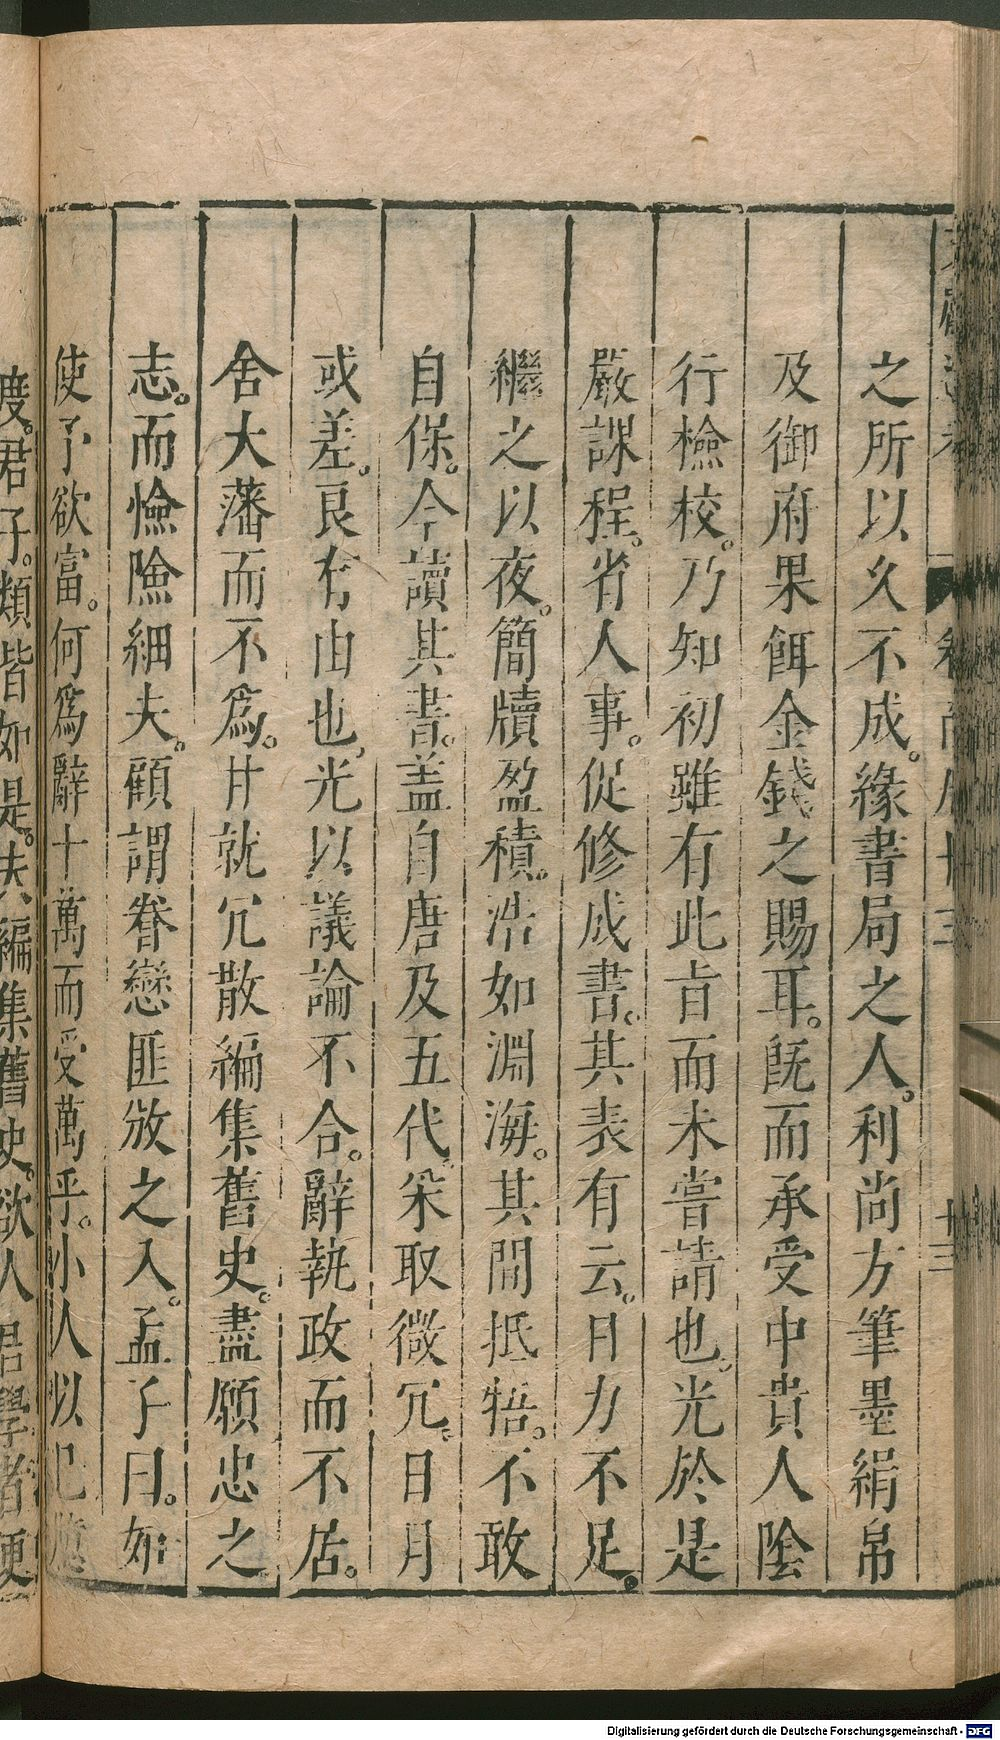 之所以久不成。緣書局之人。利尚方筆墨絹帛
及御府果餌金錢之賜耳。旣而承受中貴人陰
行檢校。乃知初雖有此旨而未嘗請也。光於是
嚴課程。省人事。促修成書。其表有云。日力不足。
繼之以夜。簡牘盈積。浩如淵海。其間抵牾。不敢
自保。今讀其書。盖自唐及五代。采取微冗。日月
或差。良有由也。光以議論不合。辭執政而不居。
舍大藩而不爲。甘就冗散編集舊史。盡願忠之
志。而憸險細夫。顧謂眷戀匪攽之入。孟子曰。如
使予欲富。何爲辭十萬而受萬乎。小人以己
度。君子。類皆如是。夫編集舊史。欲人君學者便
Digitalisierung gefördert durch die Deutsche Forschungsgemeinschaft - DFG